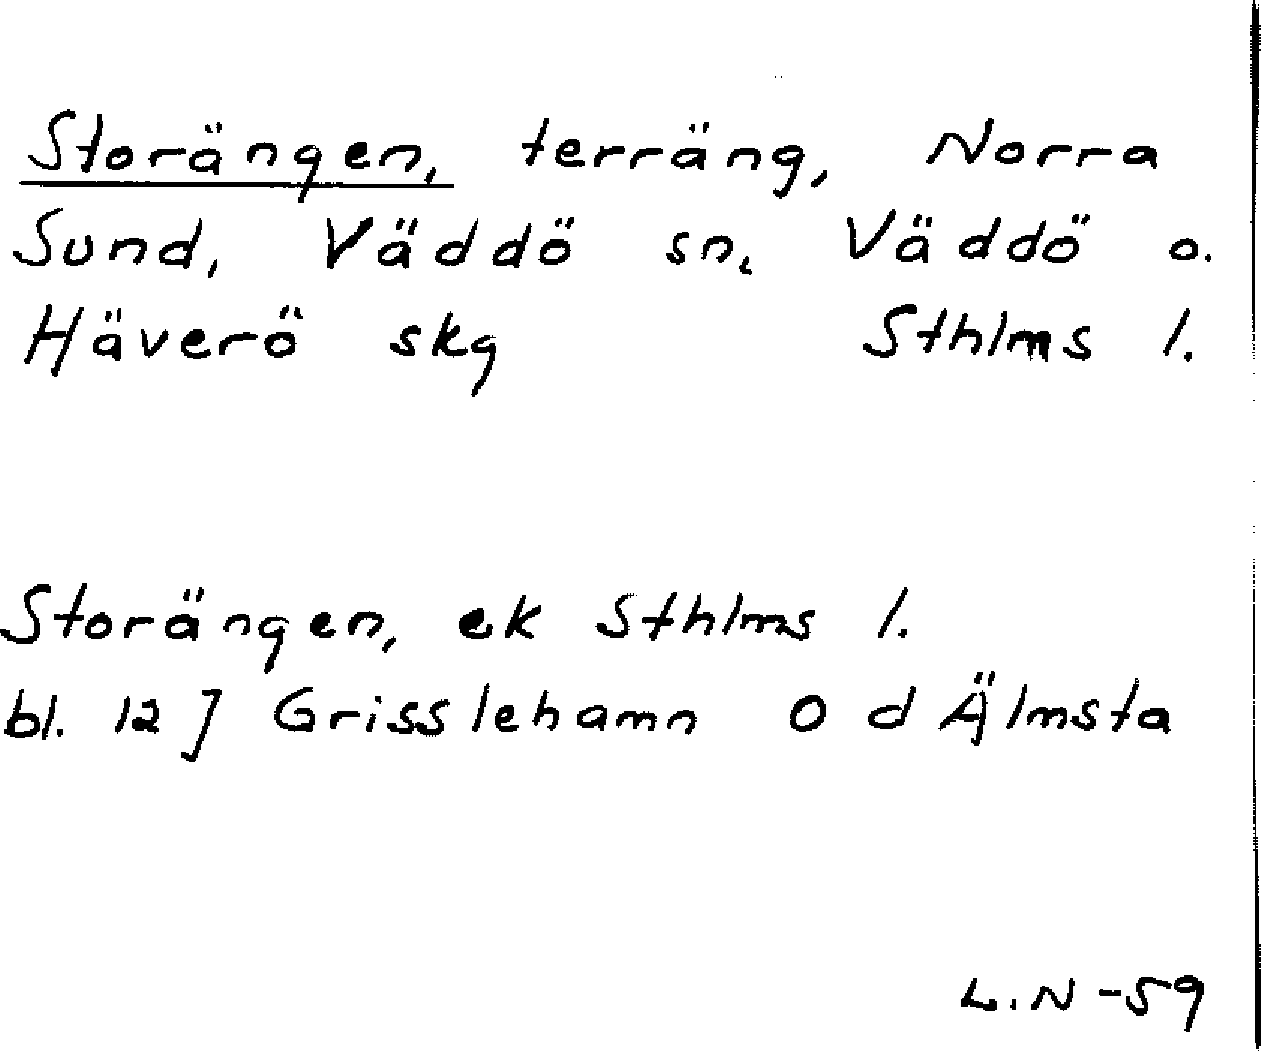 Storängen, terräng, Norra
Sund, Väddö sn, Väddö o.
Häverö skg Sthlms l.
Storängen, ek Sthlms l.
bl. 12 J Grisslehamn O d Älmsta
L.N -59